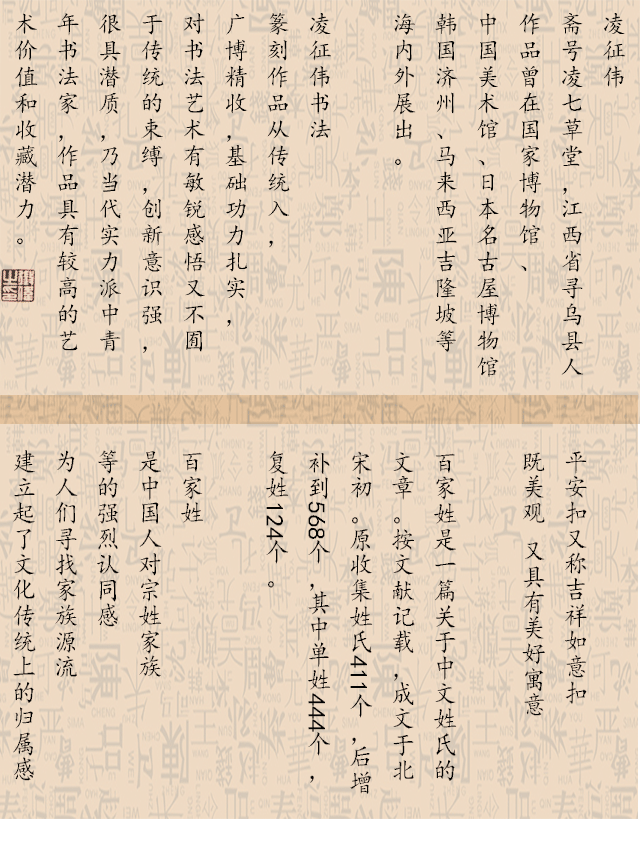 凌征伟
斋号凌七草堂，江西省寻乌县人
作品曾在国家博物馆、
中国美术馆、日本名古屋博物馆
韩国济州、马来西亚吉隆坡等
海内外展出。
凌征伟书法
篆刻作品从传统入，
广博精收，基础功力扎实，
对书法艺术有敏锐感悟又不囿
于传统的束缚，创新意识强，
很具潜质，乃当代实力派中青
年书法家，作品具有较高的艺
术价值和收藏潜力。
平安扣又称吉祥如意扣
既美观 又具有美好寓意
百家姓是一篇关于中文姓氏的
文章。按文献记载，成文于北
宋初。原收集姓氏411个，后增
补到568个，其中单姓444个，
复姓124个。
百家姓
是中国人对宗姓家族
等的强烈认同感
为人们寻找家族源流
建立起了文化传统上的归属感